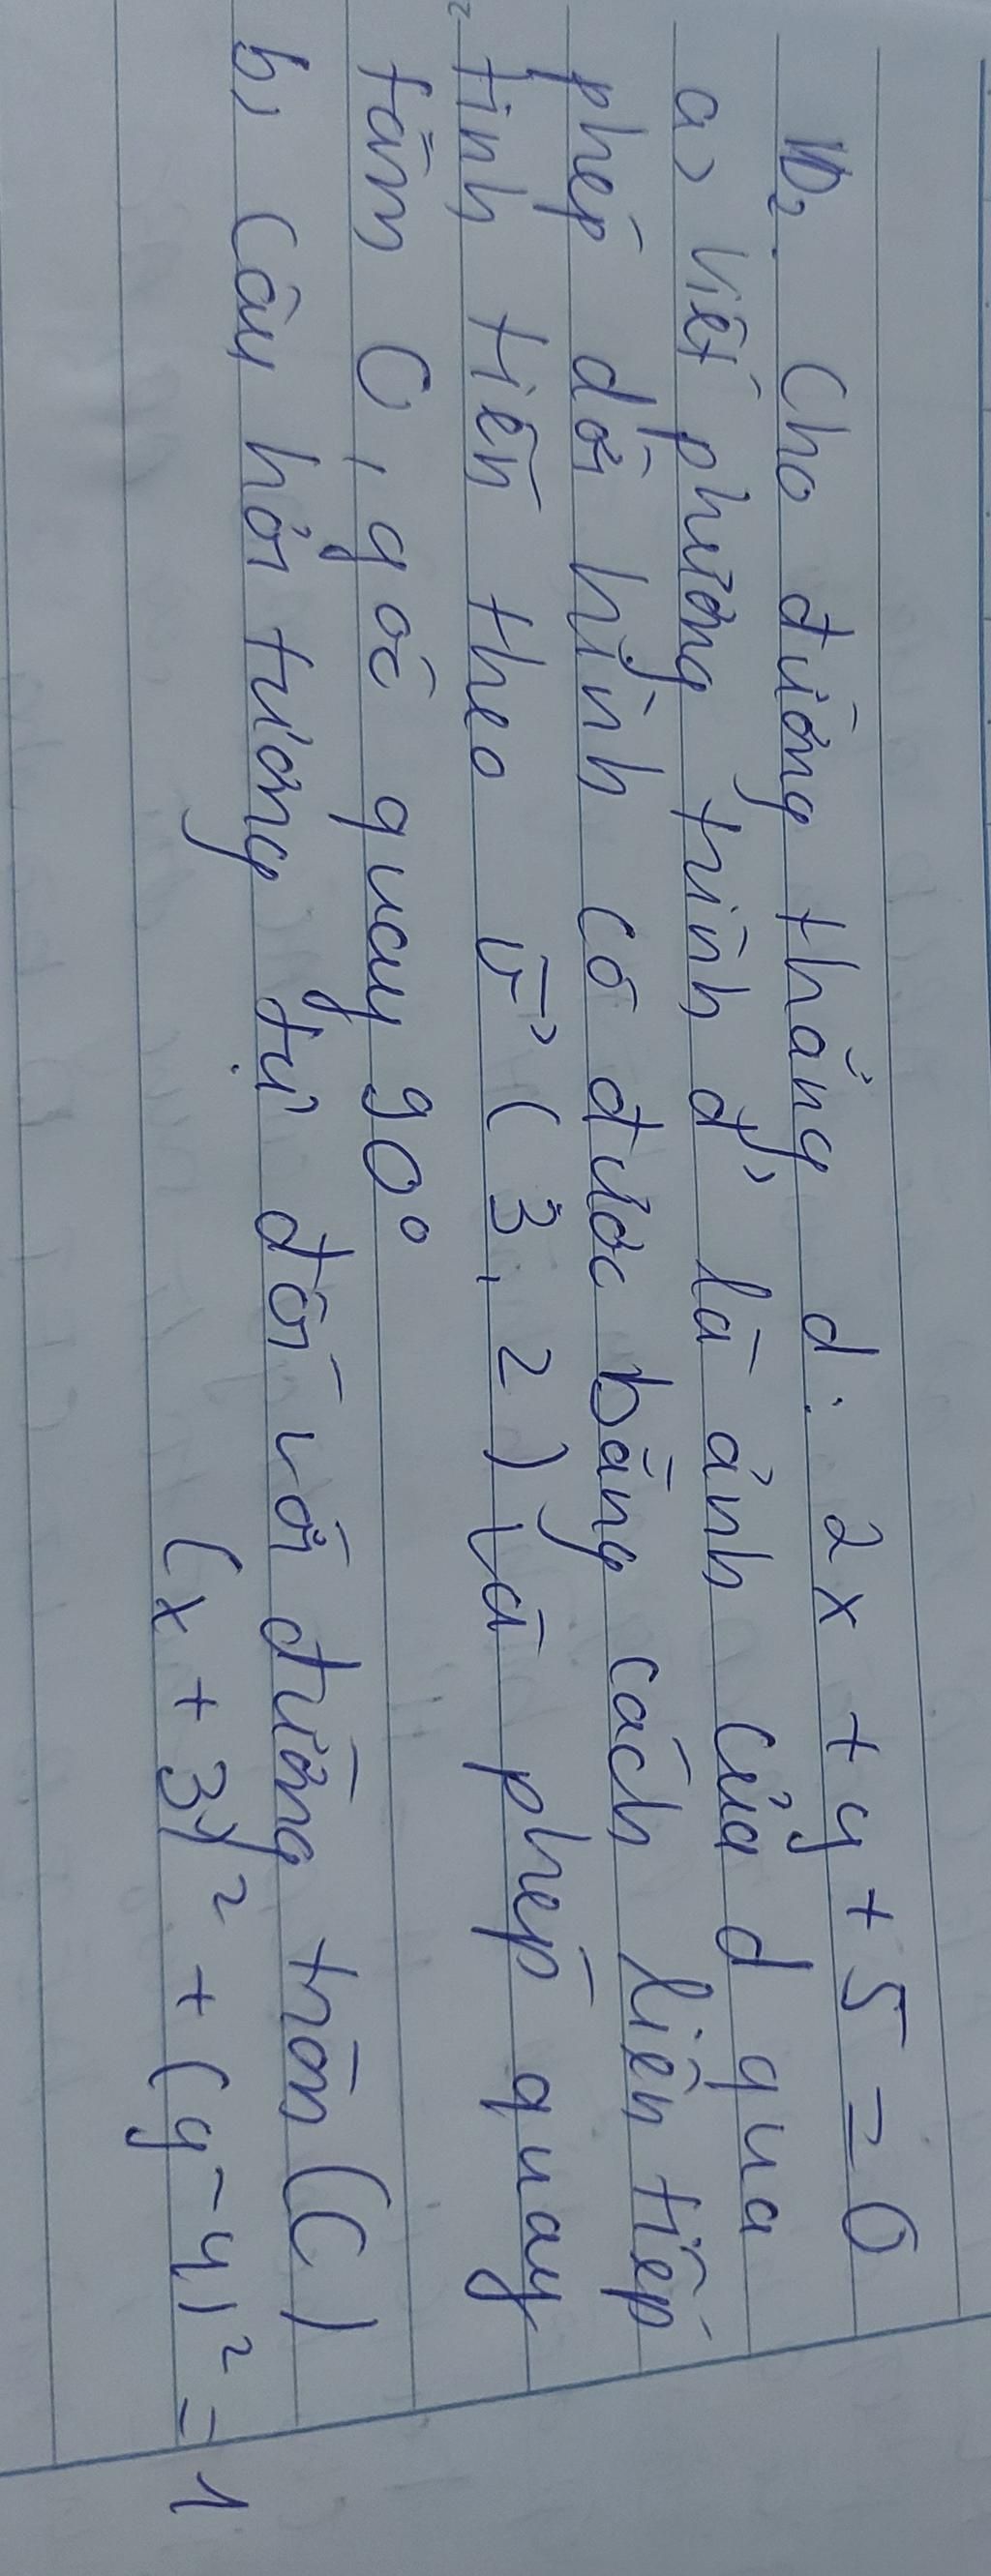 Cho đường thẳng d: 2x + y + 5 = 0
a) Viết phương trình d' là ảnh của d qua
phép dời hình có được bằng cách liên tiếp
tịnh tiến theo v→(3, 2) và phép quay
tâm O, góc quay 90°
b) Câu hỏi tương tự đối với đường tròn (C)
(x + 3)² + (y - 4)² = 1